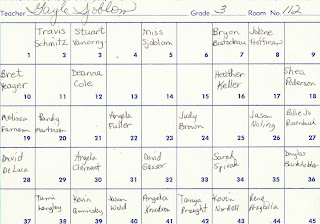 Teacher Gayle Sjoblom Grade 3 Room No. 112
Travis Schmitz
Stuart
Miss Sjoblom
Bryon
Jolene Holtman
1 2 3 4 5 6 7 8 9
Bret Yeager
Deanna Cole
Heather Keller
Shea Pederson
10 11 12 13 14 15 16 17 18
Melissa
Randy
Angela Fuller
Judy Brown
Jason
Billie Jo
19 20 21 22 23 24 25 26 27
David DeLuca
Angela Clement
David Gasser
Sarah Spirak
Douglas
28 29 30 31 32 33 34 35 36
Tami Langley
Kevin
Jason Wold
Angela
Tanya
Kevin
Rene
37 38 39 40 41 42 43 44 45